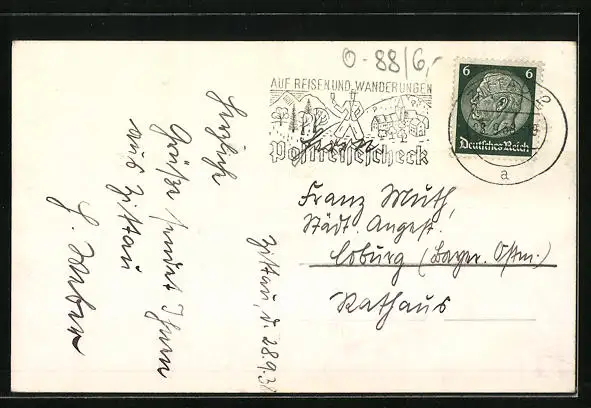 0-88/6,-
AUF REISEN UND WANDERUNGEN
Postreisescheck
6 6
Deutsches Reich
ZITTAU
a
Herzliche
Grüße sendet Ihnen
aus Zittau
Zittau, d. 28.9.3
Herrn
Franz Muth,
Städt. Angest.
Coburg (Bayer. Ostm.)
Rathaus